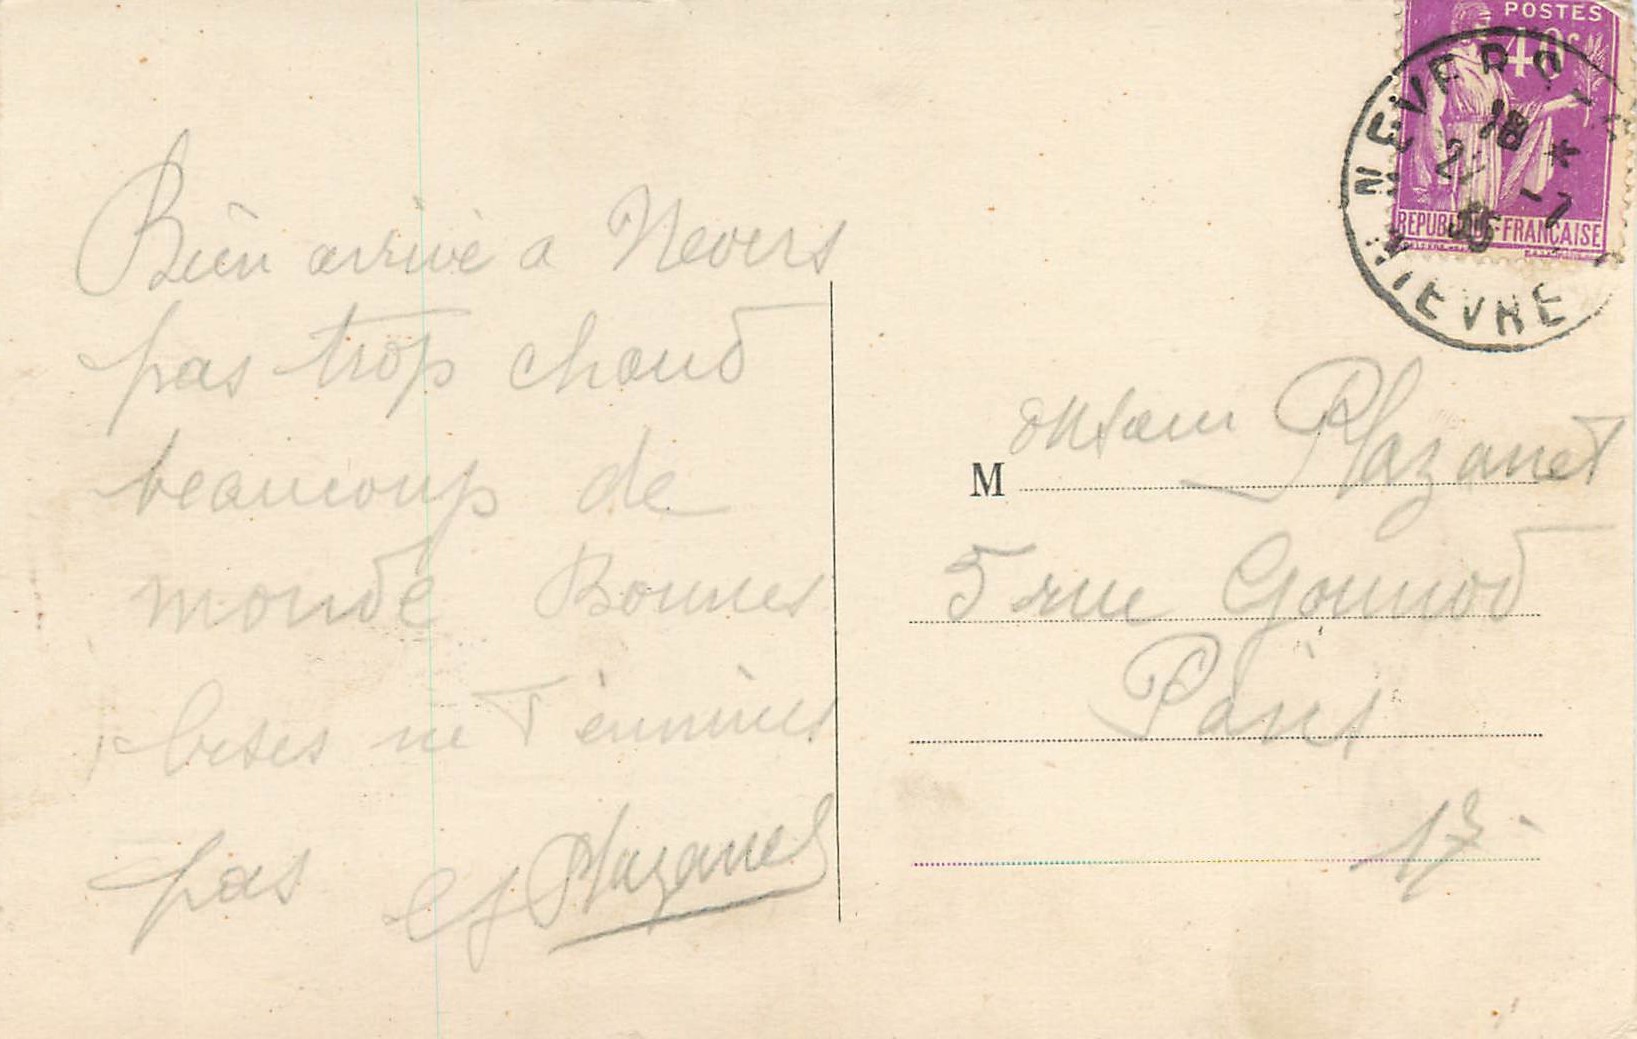 Bien arrivé a Nevers
pas trop chaud
beaucoup de
monde Bonnes
bises ne T ennuies
pas Plazanet
POSTES
40c
REPUBLIQUE FRANÇAISE
NEVERS
18 *
35
NIEVRE
Monsieur Plazanet
5 rue Gounod
Paris
17